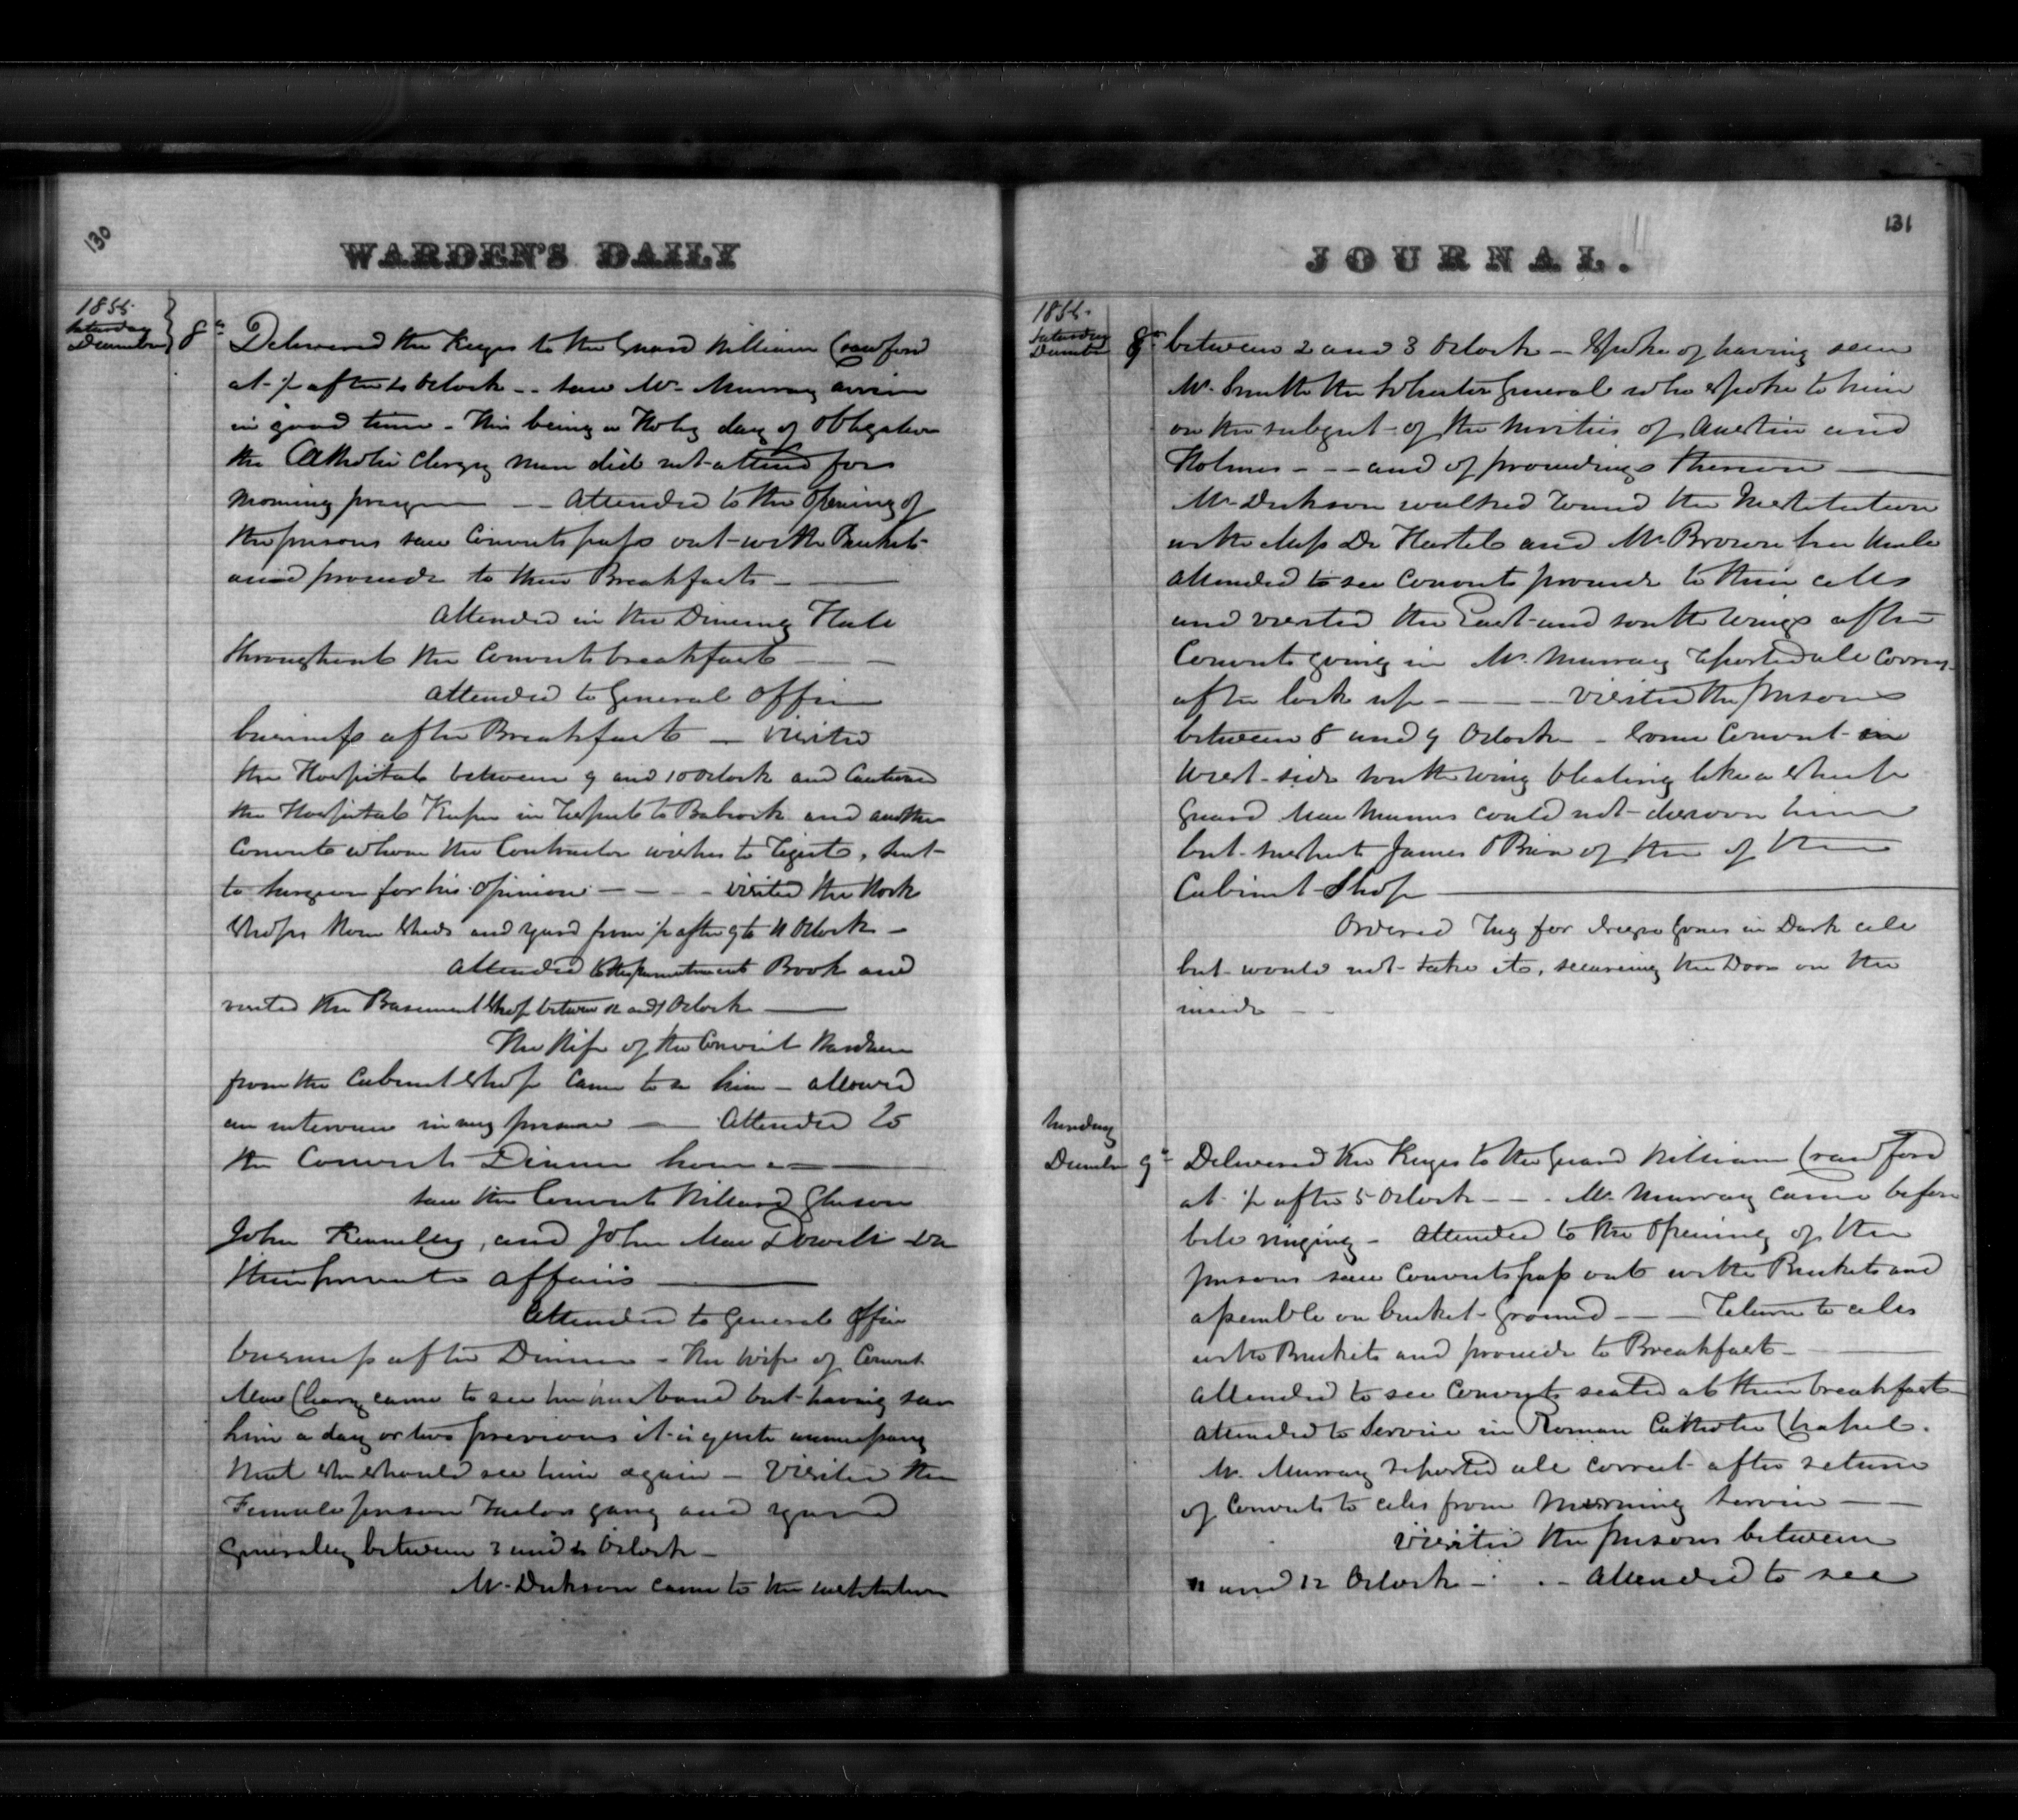 130
WARDEN'S DAILY
1855
Saturday
December 8th
Delivered the Keys to the Guard William Crawford
at ½ after 6 Oclock -- saw Mr. Murray arrive
in good time - This being a Holy day of Obligation
the Catholic Clergy man did not attend for
morning prayer -- Attended to the Opening of
the prisons saw Convicts pass out with Buckets
and proceed to their Breakfasts -
Attended in the Dining Hall
throughout the Convicts breakfast
Attended to General Office
business after Breakfast - Visited
the Hospital between 9 and 10 Oclock and Cautioned
the Hospital Keeper in respect to Babcock and another
Convict whom the Contractor wishes to reject, sent
to Surgeon for his Opinion - - - visited the Work
Shops Stone Sheds and yard from ½ after 9 to 11 Oclock -
Attended to Punishment Book and
visited the Basement Shop between 12 and 1 Oclock
The Wife of the Convict
from the Cabinet Shop came to see him - allowed
an interview in my presence - Attended to
the Convicts Dinner hour
Saw the Convicts Willard Gleason
John and John Mac Dowell on
their private affairs
Attended to General Office
business after Dinner - The Wife of Convict
Mac Cleary came to see her husband but having saw
him a day or two previous it is quite unnecessary
that she should see him again - Visited the
Female prison Tailors gang and yard
Generally between 3 and 4 Oclock -
Mr. Dickson came to the institution
JOURNAL.
131
1855.
Saturday
December 8th
between 2 and 3 Oclock - Spoke of having seen
Mr. Smith the Solicitor General who spoke to him
on the subject of the of Austin and
Holmes - - - and of proceedings thereon
Mr. Dickson walked round the Institution
with Miss De Hartel and Mr. Brown her Uncle
Attended to see Convicts proceed to their cells
and visited the East and south wings after
Convicts going in Mr. Murray reported all Correct
after lock up - - - Visited the prisons
between 8 and 9 Oclock - Some Convict in
West side south wing bleating like a sheep
Guard Mac Manus could not discover him
but suspects James OBrien of the of the
Cabinet Shop
Ordered rug for Jones in Dark cell
but would not take it, securing the Door on the
inside
Sunday
December 9th
Delivered the Keys to the Guard William Crawford
at ½ after 5 Oclock - - - Mr. Murray came before
bell ringing - Attended to the Opening of the
prisons saw Convicts pass out with Buckets and
assemble on bucket Ground - - Return to cells
with Buckets and proceed to Breakfast -
Attended to see Convicts seated at their breakfasts
Attended to Service in Roman Catholic Chapel.
Mr. Murray reported all correct after return
of Convicts to cells from morning Service -
Visited the prisons between
11 and 12 Oclock - - - Attended to see